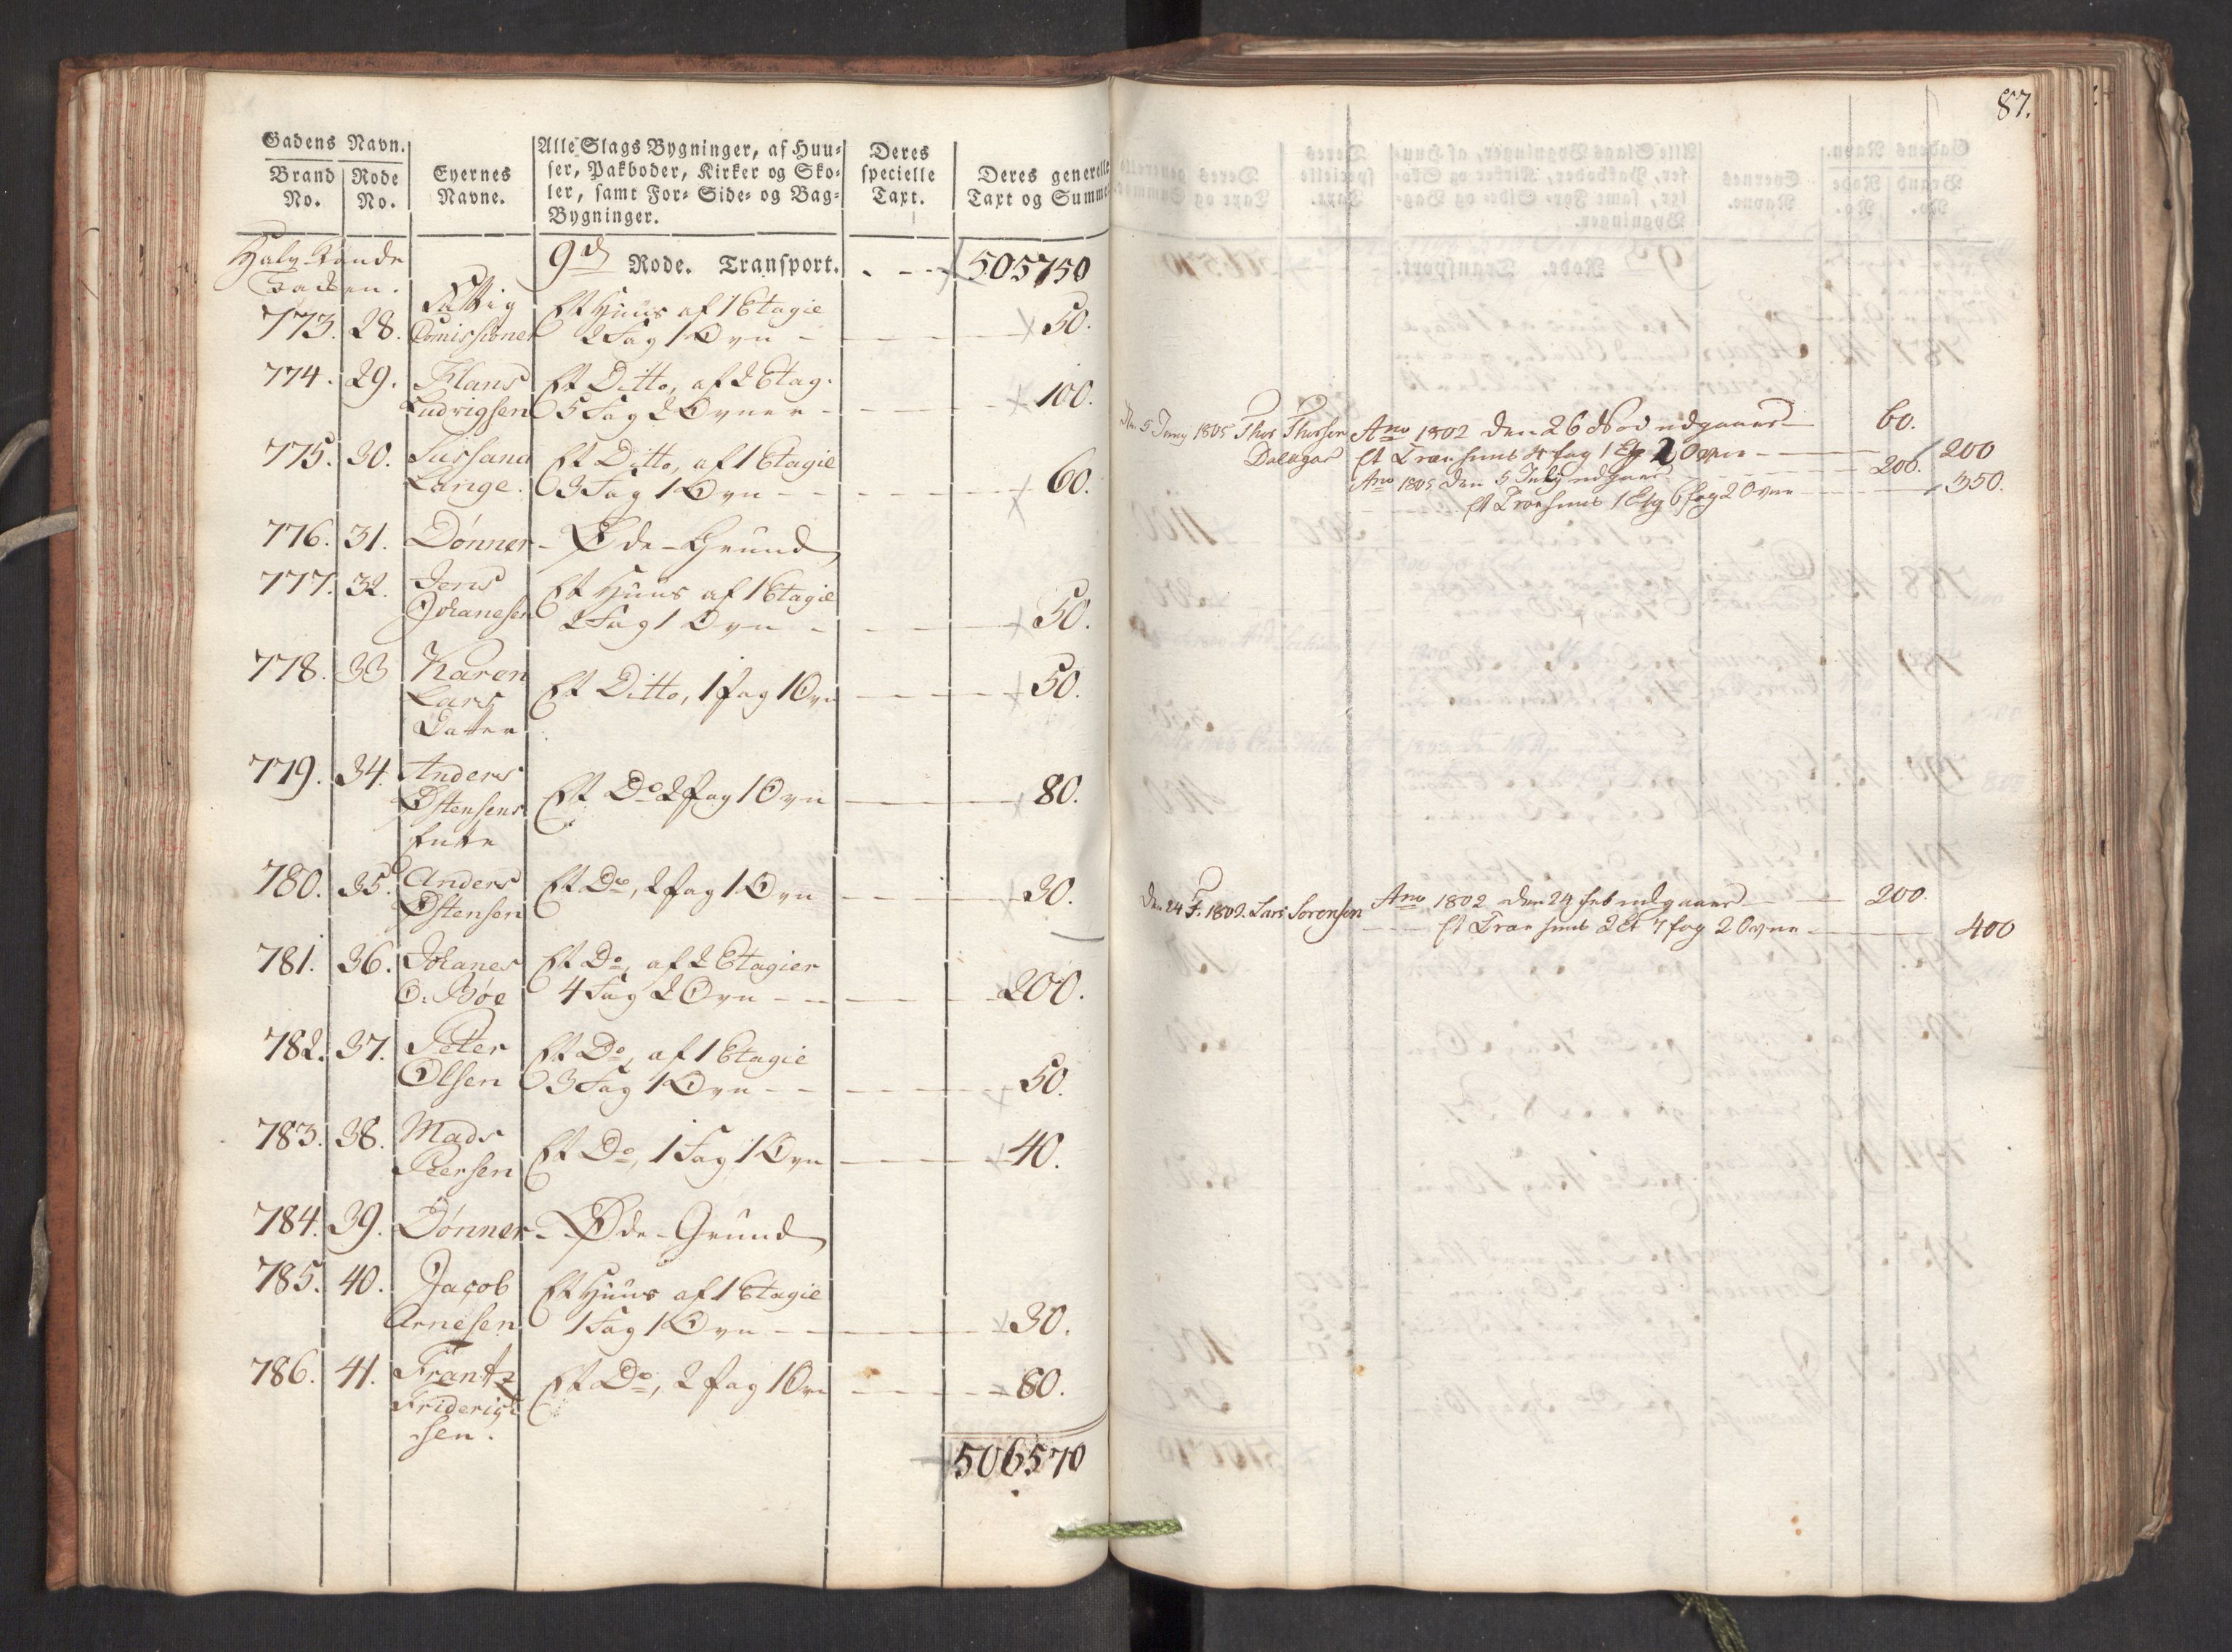 Gadens Navn.
Brand No. | Rode No. | Eyernes Navne. | Alle Slags Bygninger, af Huu-
ser, Pakboder, Kirker og Sko-
ler, samt For- Side- og Bag-
Bygninger. | Deres specielle Taxt. | Deres generelle Taxt og Summe
9de Rode. Transport. 505750
773. 28. Fattig Et Huus af 1 Etagie
Comissionen 2 Fag 1 Ovn 50.
774. 29. Hans Et Ditto, af 2 Etag.
Ludvigsen 5 Fag 2 Ovner 100.
775. 30. Sussana Et Ditto, af 1 Etagie
Lange. 3 Fag 1 Ovn 60.
776. 31. Dønner Øde-Grund
777. 32. Jens Et Huus af 1 Etagie
Johanesen 2 Fag 1 Ovn 50.
778. 33 Karen
Lars Et Ditto, 1 fag 1 Ovn 50.
Datter
779. 34. Anders
Østensens Et Do 2 fag 1 Ovn 80.
Enke
780. 35. Anders Et Do, 2 fag 1 Ovn 30.
Østensen
781. 36. Johanes Et Do, af 2 Etagier
O. Bøe 4 Fag 2 Ovn 200.
782. 37. Peter Et Do, af 1 Etagie
Olsen 3 Fag 1 Ovn 50.
783. 38. Mads
Peersen Et Do, 1 Fag 1 Ovn 40.
784. 39. Dønner Øde-Grund
785. 40. Jacob Et Huus af 1 Etagie
Arnesen 1 Fag 1 Ovn 30.
786. 41. Frantz Et Do, 2 fag 1 Ovn 80.
Friderich
sen.
506570
87.
Den 5 Juny 1805 Thor Thorsen Ano 1802 den 26 udgaaer 60.
Dalegar Et Træehuus 4 fag 1 Etg 2 Ovne 200
Ano 1805 den 5 July udgaaer 200.
Et Træehuus 1 Etg 6 fag 2 Ovne 350.
Den 24 F. 1802. Lars Sørensen Ano 1802 den 24 feb udgaaer 200.
Et Træe huus 2 Et 7 fag 2 Ovne 400